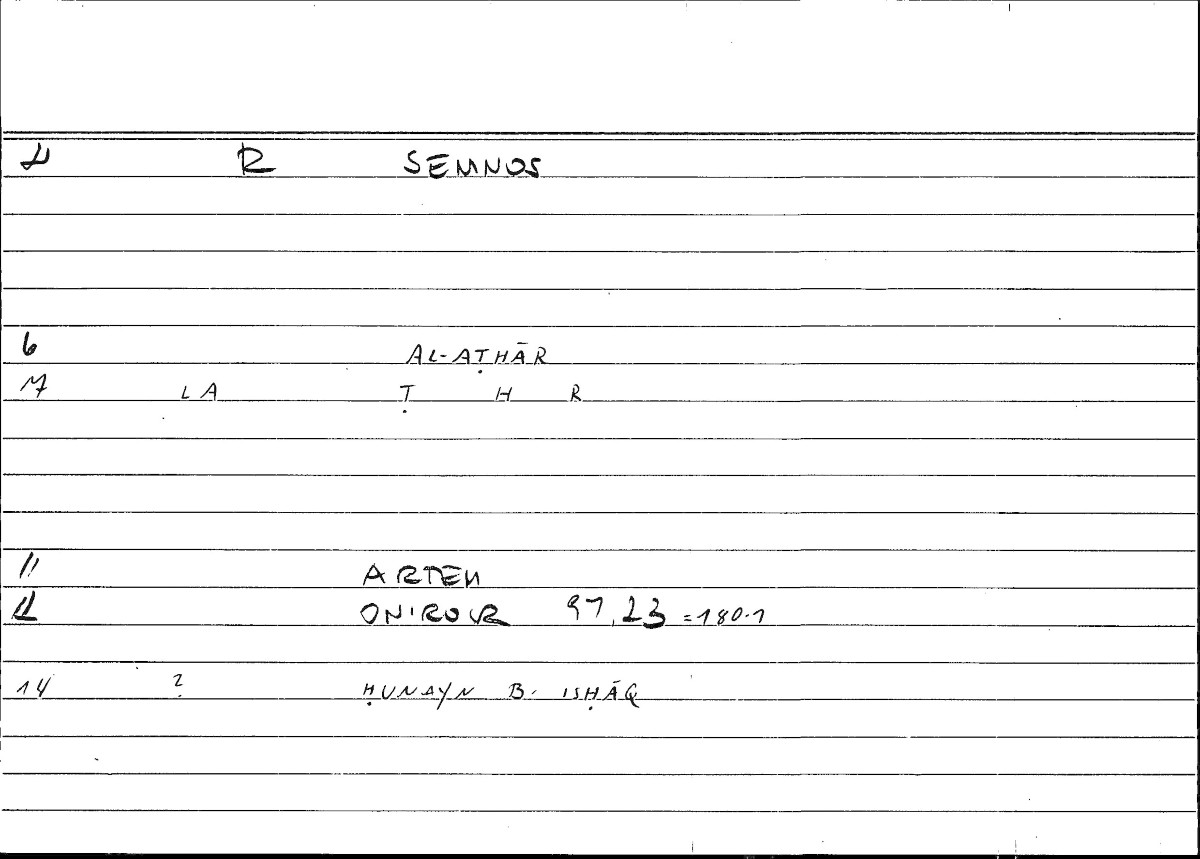 R SEMNOS
6 AL-AṬHĀR
7 LA Ṭ H R
11 ARTEM
ONIROCR 97,23 =180.1
14 2 ḤUNAYN B. ISḤĀQ